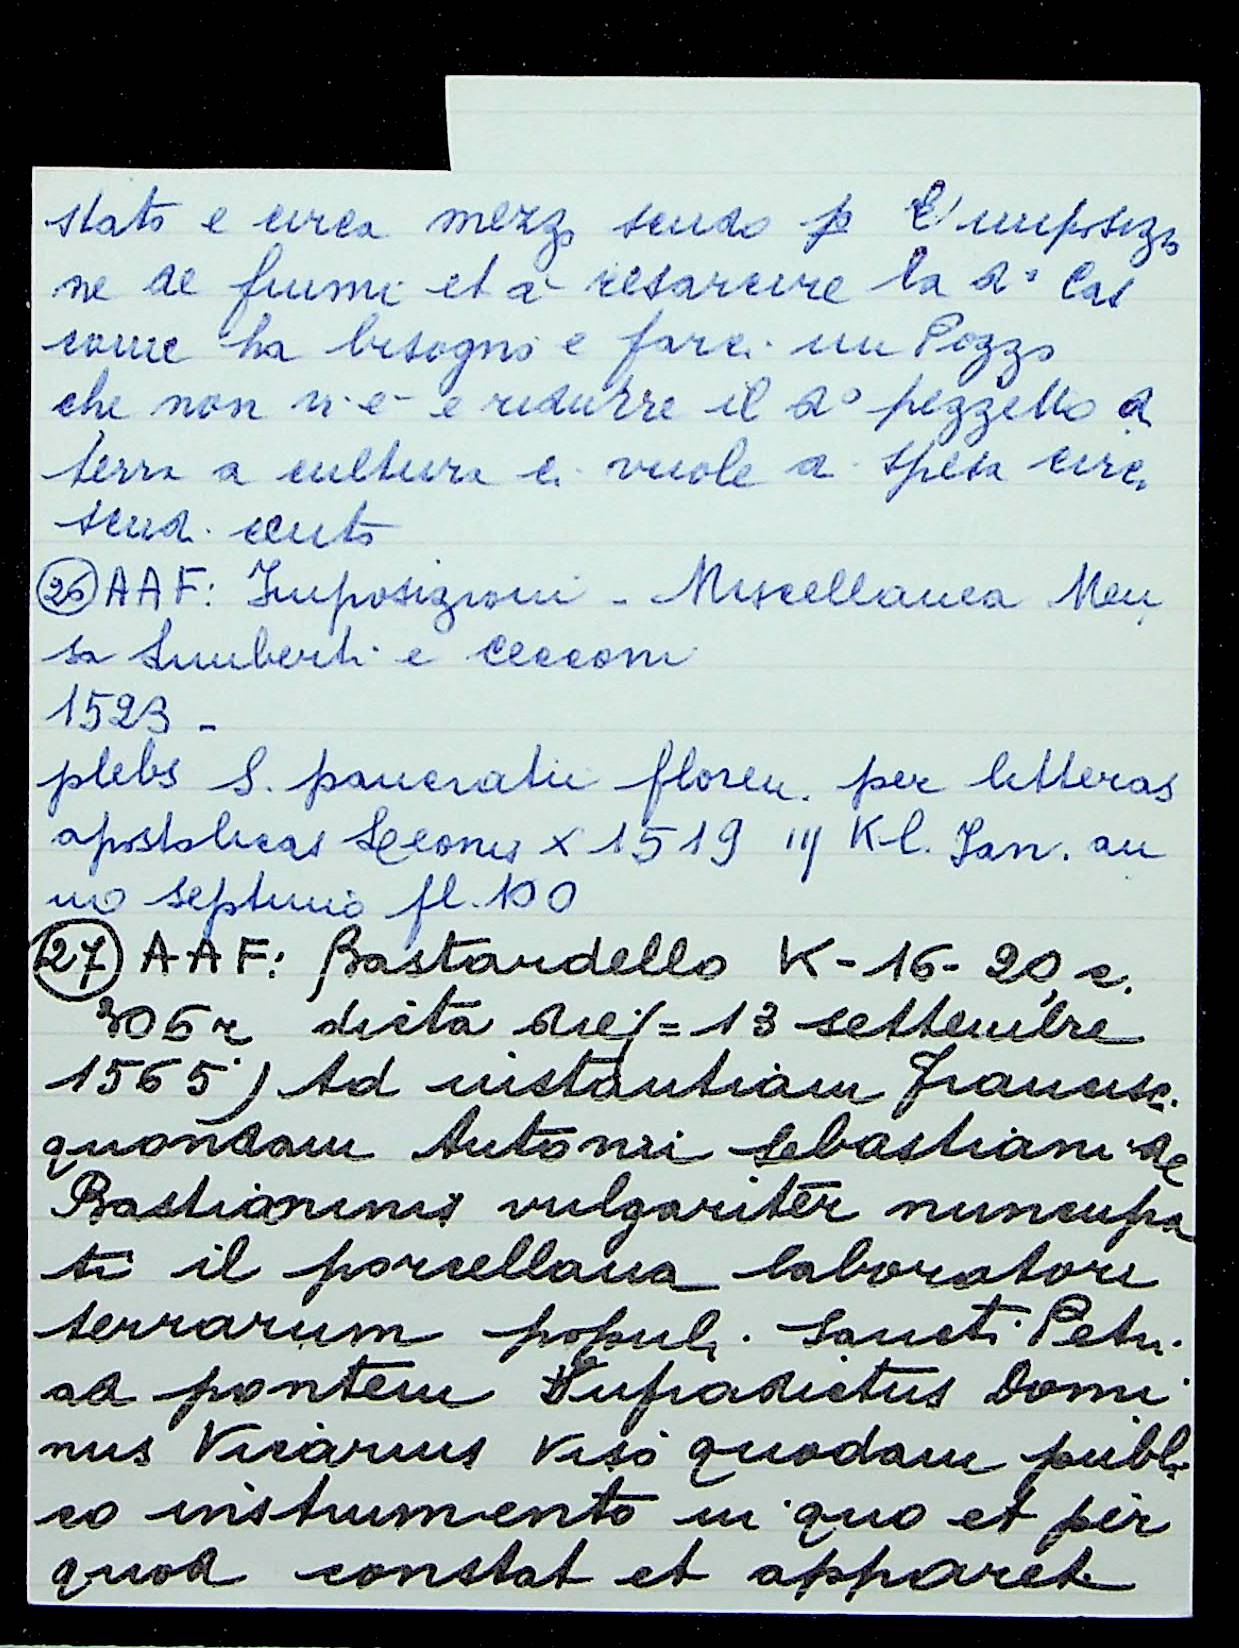 stato e circa mezzo scudo p l'imposizio
ne de fiumi et a resarcire la d.a Cas
come ha bisogno e farci un Pozzo
che non vi è e ridurre il d.o pezzetto d
terra a cultura ci vuole a spesa circ.
scudi cento
(26) AAF: Imposizioni - Miscellanea Men
sa Lumberti e Cecconi
1523 -
plebs S. pancratii floren. per litteras
apostolicas Leonis X 1519 III Kl. Jan. an
no septimo fl. 100
(27) AAF: Bastardello K-16-20, c.
306r dicta die (=13 settembre
1565) Ad instantiam Francisc.
quondam Antonii Sebastiani de
Bastianinis vulgariter nuncupa
ti il porcellana laboratori
terrarum populi Sancti Petri
ad pontem Supradictus Domi
nus Vicarius viso quodam pubbli
co instrumento in quo et per
quod constat et apparet